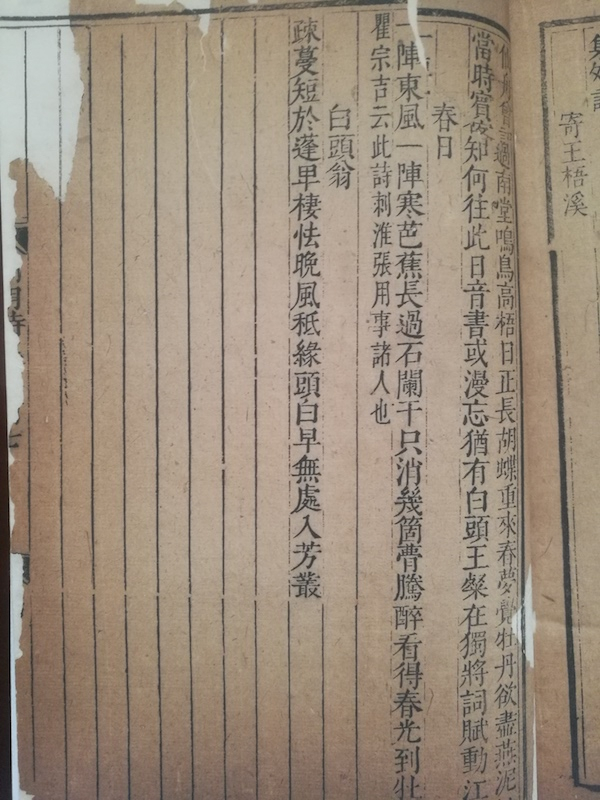 集外詩
寄王梧溪
南堂鳴鳥高梧日正長胡蝶重來春夢覺牡丹欲盡燕泥
當時賓從知何往此日音書或漫忘猶有白頭王粲在獨將詞賦動江
春日
一陣東風一陣寒芭蕉長過石闌干只消幾箇瞢騰醉看得春光到牡
瞿宗吉云此詩刺淮張用事諸人也
白頭翁
疎蔓短於蓬早棲怯晚風秪緣頭白早無處入芳叢